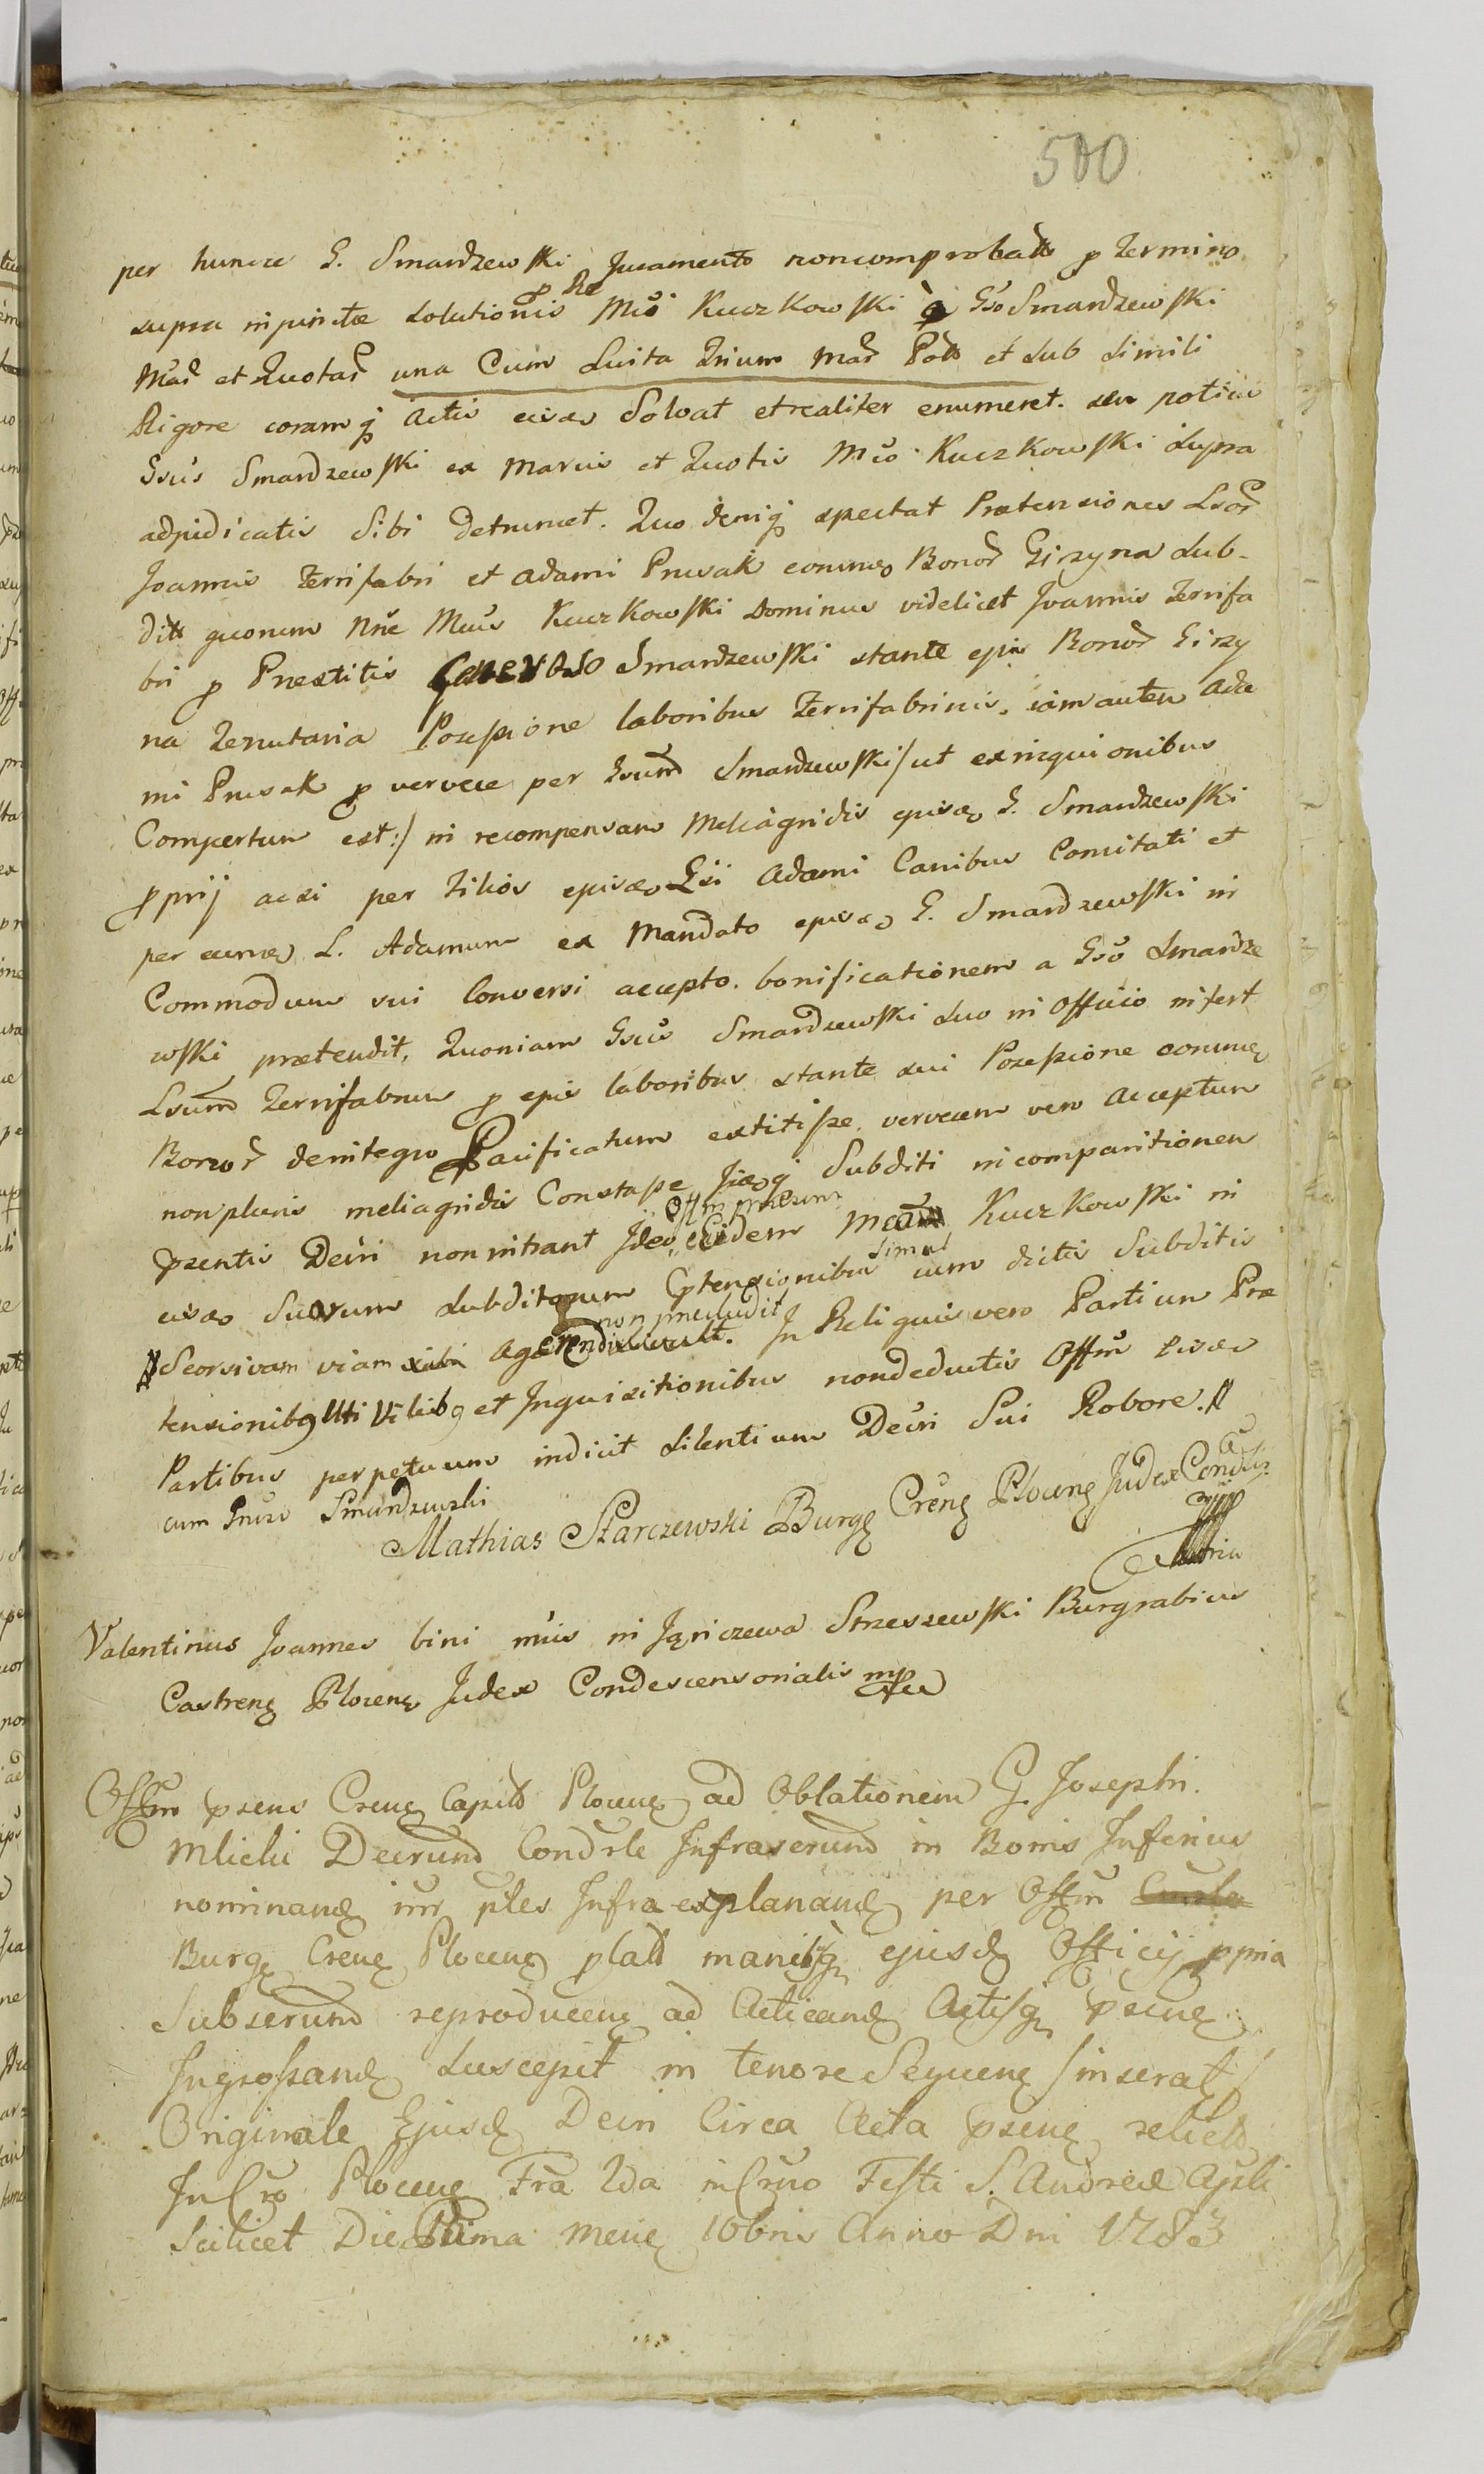 500
per huncce G. Smardzewski Juramento noncomprobatt p Termino
supra injunctae Solutionis p Re Mcō Kuczkowski a Gso Smardzewski
Mar et Quotar una Cum Luita Trium Mar Poll et sub simili
Rigore coramq Actis eisdem Solvat et realiter enumeret. seu potius
Gsus Smardzewski ex Marcis et Quotis Mco Kuczkowski supra
adjudicatis Sibi detruncet. Quo deniq spectat Praetensiones Lsor
Joannis Ferrifabri et Adami Prusak eorundem Bonor Girzyna Sub-
ditt quorum Nne Mcus Kuczkowski Dominus videlicet Joannis Ferrifa
bri p Praestitis Generoso Smardzewski stante ejus Bonor Girzy
na Tenutaria Possessione laboribus Ferrifabrinis, iam autem Ada
mi Prusak p vervece per Gsum Smardzewski /ut ex inquionibus
Compertum est:/ in recompensam Meleagridis ejusdem G. Smardzewski
pprij acsi per Filios ejusdem Lsi Adami Canibus Concitati et
per eundem L. Adamum ex Mandato ejusdem G. Smardzewski in
Commodum sui Conversi accepto. bonificationem a Gso Smardze
wski praetendit, Quoniam Gsus Smardzewski suo in Officio infert
Lsum Ferrifabrum p ejus laboribus stante sui Possessione eorundem
Bonor deintegro Pacificatum extitisse, vervecem vero Acceptum
nonpluris meliagridis Constasse Jidemq Subditi incomparitionem
psentis Decri non intrant Ideo Offm praesens Eidem Mco Kuczkowski in
eisdem Suorum Subditorum Ptensionibus simul cum dictis Subditis
Seorsivam viam agendi non praecludit. In Reliquis vero Partium Prae
tensionibq Uti Vilibq et Inquisitionibus nondeductis Offm eisdem
Partibus perpetuum indicit silentium Decri Sui Robore.
cum Gnuso Smardzewski
Mathias Starczewski Burg Crens Plocens Judex Condlis
mpp
Valentinus Joannes bini nnis in Janiczewa Strzeszewski Burgrabius
Castrens Plocens Judex Condescensorialis mp
Offm psens Crens Capitt Plocens ad Oblationem G. Josephi
Mlicki Decrum Condsle Infrascrum in Bonis Inferius
nominand inr ptes Infra explanand per Offm
Burg Crens Plocens platt manibq ejusd Officij ppria
Subscrum reproducens ad Acticand Actisq psens
Ingrossand suscepit in tenore Sequens /inserat/
Originale Ejusd Decri Circa Acta psens relictt
In Cro Plocens Fra 2da in Crno Festi S. Andreae Apli
scilicet Die Prima Mens 10bris Anno Dni 1783